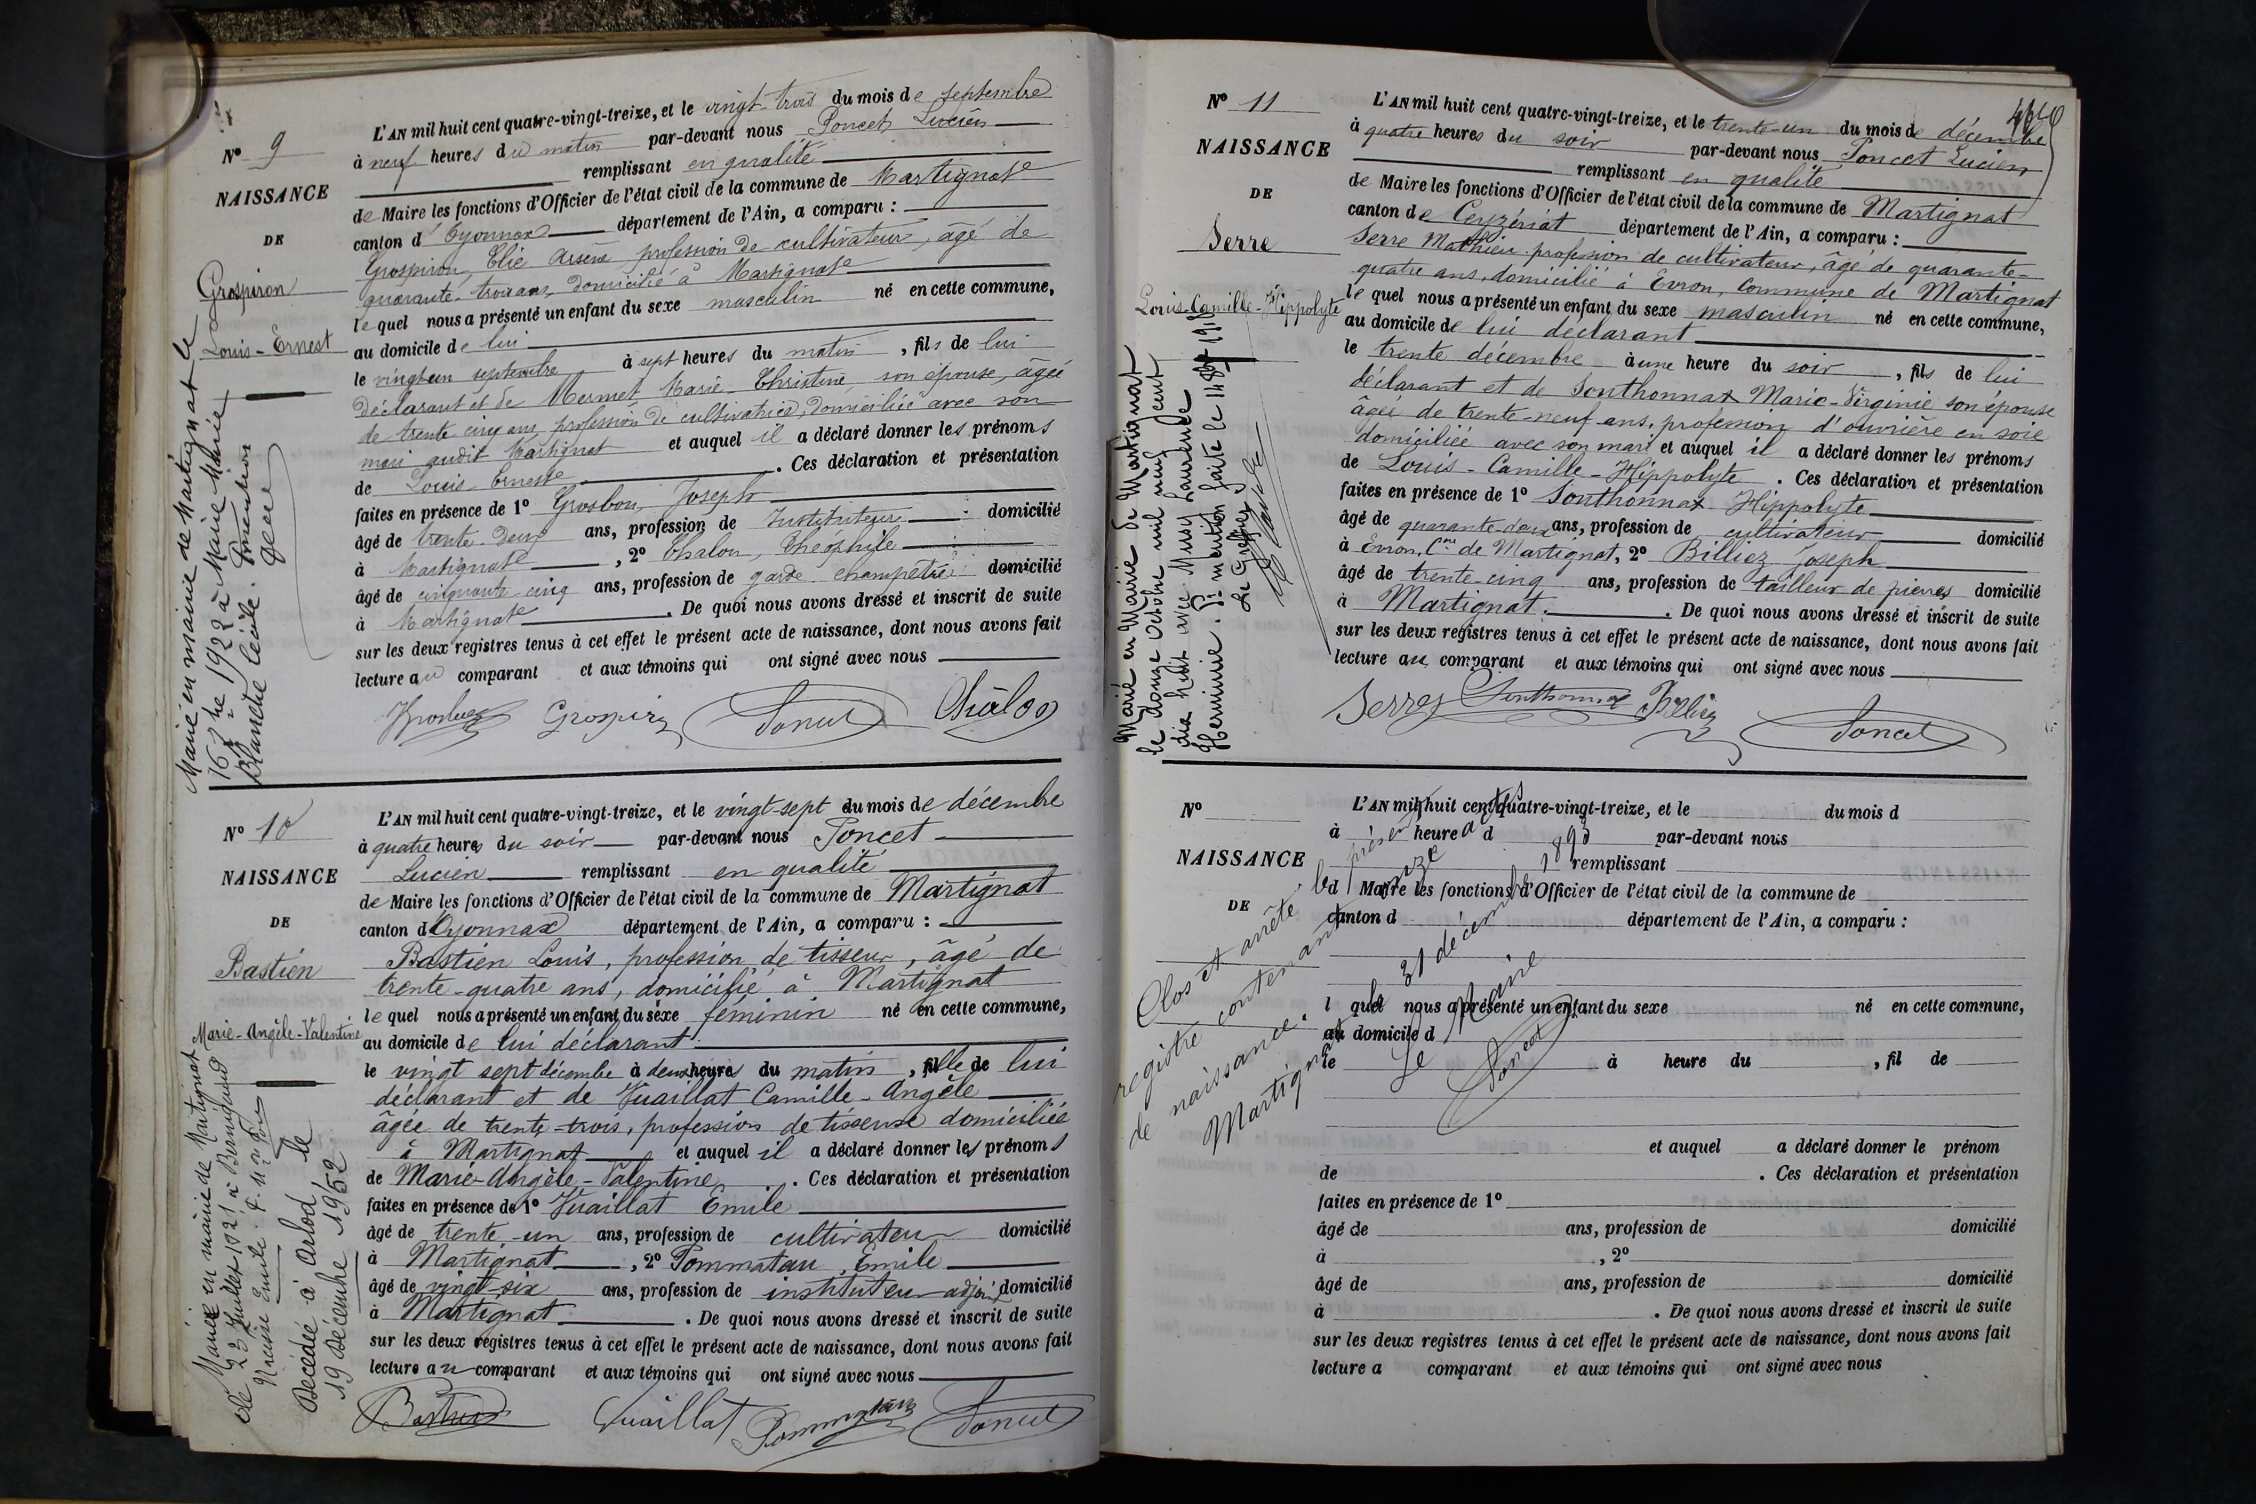 Nº 9
NAISSANCE
DE
Grospiron
Louis-Ernest
Marié en mairie de Martignat le
16 Xbre 1922 à Marie Marie
Blanche Cécile. Pr mention
L'AN mil huit cent quatre-vingt-treize, et le vingt-trois du mois de septembre
à neuf heures du matin par-devant nous Poncet Lucien
remplissant en qualité
de Maire les fonctions d'Officier de l'état civil de la commune de Martignat
canton d'Oyonnax département de l'Ain, a comparu :
Grospiron, Elie Arsène profession de cultivateur, âgé de
quarante-trois ans, domicilié à Martignat
lequel nous a présenté un enfant du sexe masculin né en cette commune,
au domicile de lui
le vingt-un septembre à sept heures du matin, fils de lui
déclarant et de Mermet Marie-Christine son épouse, âgée
de trente cinq ans, profession de cultivatrice, domiciliée avec son
mari audit Martignat et auquel il a déclaré donner les prénoms
de Louis-Ernest. Ces déclaration et présentation
faites en présence de 1º Grosbon, Joseph
âgé de trente-deux ans, profession de Instituteur domicilié
à Martignat, 2º Chalon, Théophile
âgé de cinquante-cinq ans, profession de garde-champêtre domicilié
à Martignat. De quoi nous avons dressé et inscrit de suite
sur les deux registres tenus à cet effet le présent acte de naissance, dont nous avons fait
lecture au comparant et aux témoins qui ont signé avec nous
Grospiron Poncet Châlon
Nº 10
NAISSANCE
DE
Bastien
Marie-Angèle-Valentine
Mariée en mairie de Martignat
le 23 Juillet 1921 à Bernigaud
Décédée à Arbod le
19 Décembre 1952
L'AN mil huit cent quatre-vingt-treize, et le vingt-sept du mois de décembre
à quatre heures du soir par-devant nous Poncet
Lucien remplissant en qualité
de Maire les fonctions d'Officier de l'état civil de la commune de Martignat
canton d'Oyonnax département de l'Ain, a comparu :
Bastien Louis, profession de tisseur, âgé de
trente-quatre ans, domicilié à Martignat
lequel nous a présenté un enfant du sexe féminin né en cette commune,
au domicile de lui déclarant
le vingt sept décembre à deux heures du matin, fille de lui
déclarant et de Vuaillat Camille-Angèle
âgée de trente-trois, profession de tisseuse domiciliée
à Martignat et auquel il a déclaré donner les prénoms
de Marie-Angèle-Valentine. Ces déclaration et présentation
faites en présence de 1º Vuaillat Emile
âgé de trente-un ans, profession de cultivateur domicilié
à Martignat, 2º Pommatau, Emile
âgé de vingt-six ans, profession de instituteur adjoint domicilié
à Martignat. De quoi nous avons dressé et inscrit de suite
sur les deux registres tenus à cet effet le présent acte de naissance, dont nous avons fait
lecture au comparant et aux témoins qui ont signé avec nous
Bastien Vuaillat Pommatau Poncet
Nº 11
NAISSANCE
DE
Serre
Louis-Camille-Hippolyte
Marié en Mairie de Martignat
le douze Octobre mil neuf cent
Herminie. Pr mention faite le
Le Greffier,
L'AN mil huit cent quatre-vingt-treize, et le trente-un du mois de décembre
à quatre heures du soir par-devant nous Poncet Lucien
remplissant en qualité
de Maire les fonctions d'Officier de l'état civil de la commune de Martignat
canton de Ceyzériat département de l'Ain, a comparu :
Serre Mathieu profession de cultivateur, âgé de quarante-
quatre ans, domicilié à Evron, commune de Martignat
lequel nous a présenté un enfant du sexe masculin né en cette commune,
au domicile de lui déclarant
le trente décembre à une heure du soir, fils de lui
déclarant et de Sonthonnax Marie-Virginie son épouse
âgée de trente-neuf ans, profession d'ouvrière en soie
domiciliée avec son mari et auquel il a déclaré donner les prénoms
de Louis-Camille-Hippolyte. Ces déclaration et présentation
faites en présence de 1º Sonthonnax Hippolyte
âgé de quarante-deux ans, profession de cultivateur domicilié
à Evron, Cne de Martignat, 2º Billiez Joseph
âgé de trente-cinq ans, profession de tailleur de pierres domicilié
à Martignat. De quoi nous avons dressé et inscrit de suite
sur les deux registres tenus à cet effet le présent acte de naissance, dont nous avons fait
lecture au comparant et aux témoins qui ont signé avec nous
Serre Sonthonnax Billiez Poncet
Nº
NAISSANCE
DE
L'AN mil huit cent quatre-vingt-treize, et le du mois d
à heure d par-devant nous
remplissant
d Maire les fonctions d'Officier de l'état civil de la commune de
canton d département de l'Ain, a comparu :
l quel nous a présenté un enfant du sexe né en cette commune,
au domicile d
le à heure du , fil de
et auquel a déclaré donner le prénom
de . Ces déclaration et présentation
faites en présence de 1º
âgé de ans, profession de domicilié
à , 2º
âgé de ans, profession de domicilié
à . De quoi nous avons dressé et inscrit de suite
sur les deux registres tenus à cet effet le présent acte de naissance, dont nous avons fait
lecture a comparant et aux témoins qui ont signé avec nous
Clos et arrêté le présent
registre contenant onze actes
de naissance.
Martignat le 31 décembre 1893
Le Maire
Poncet